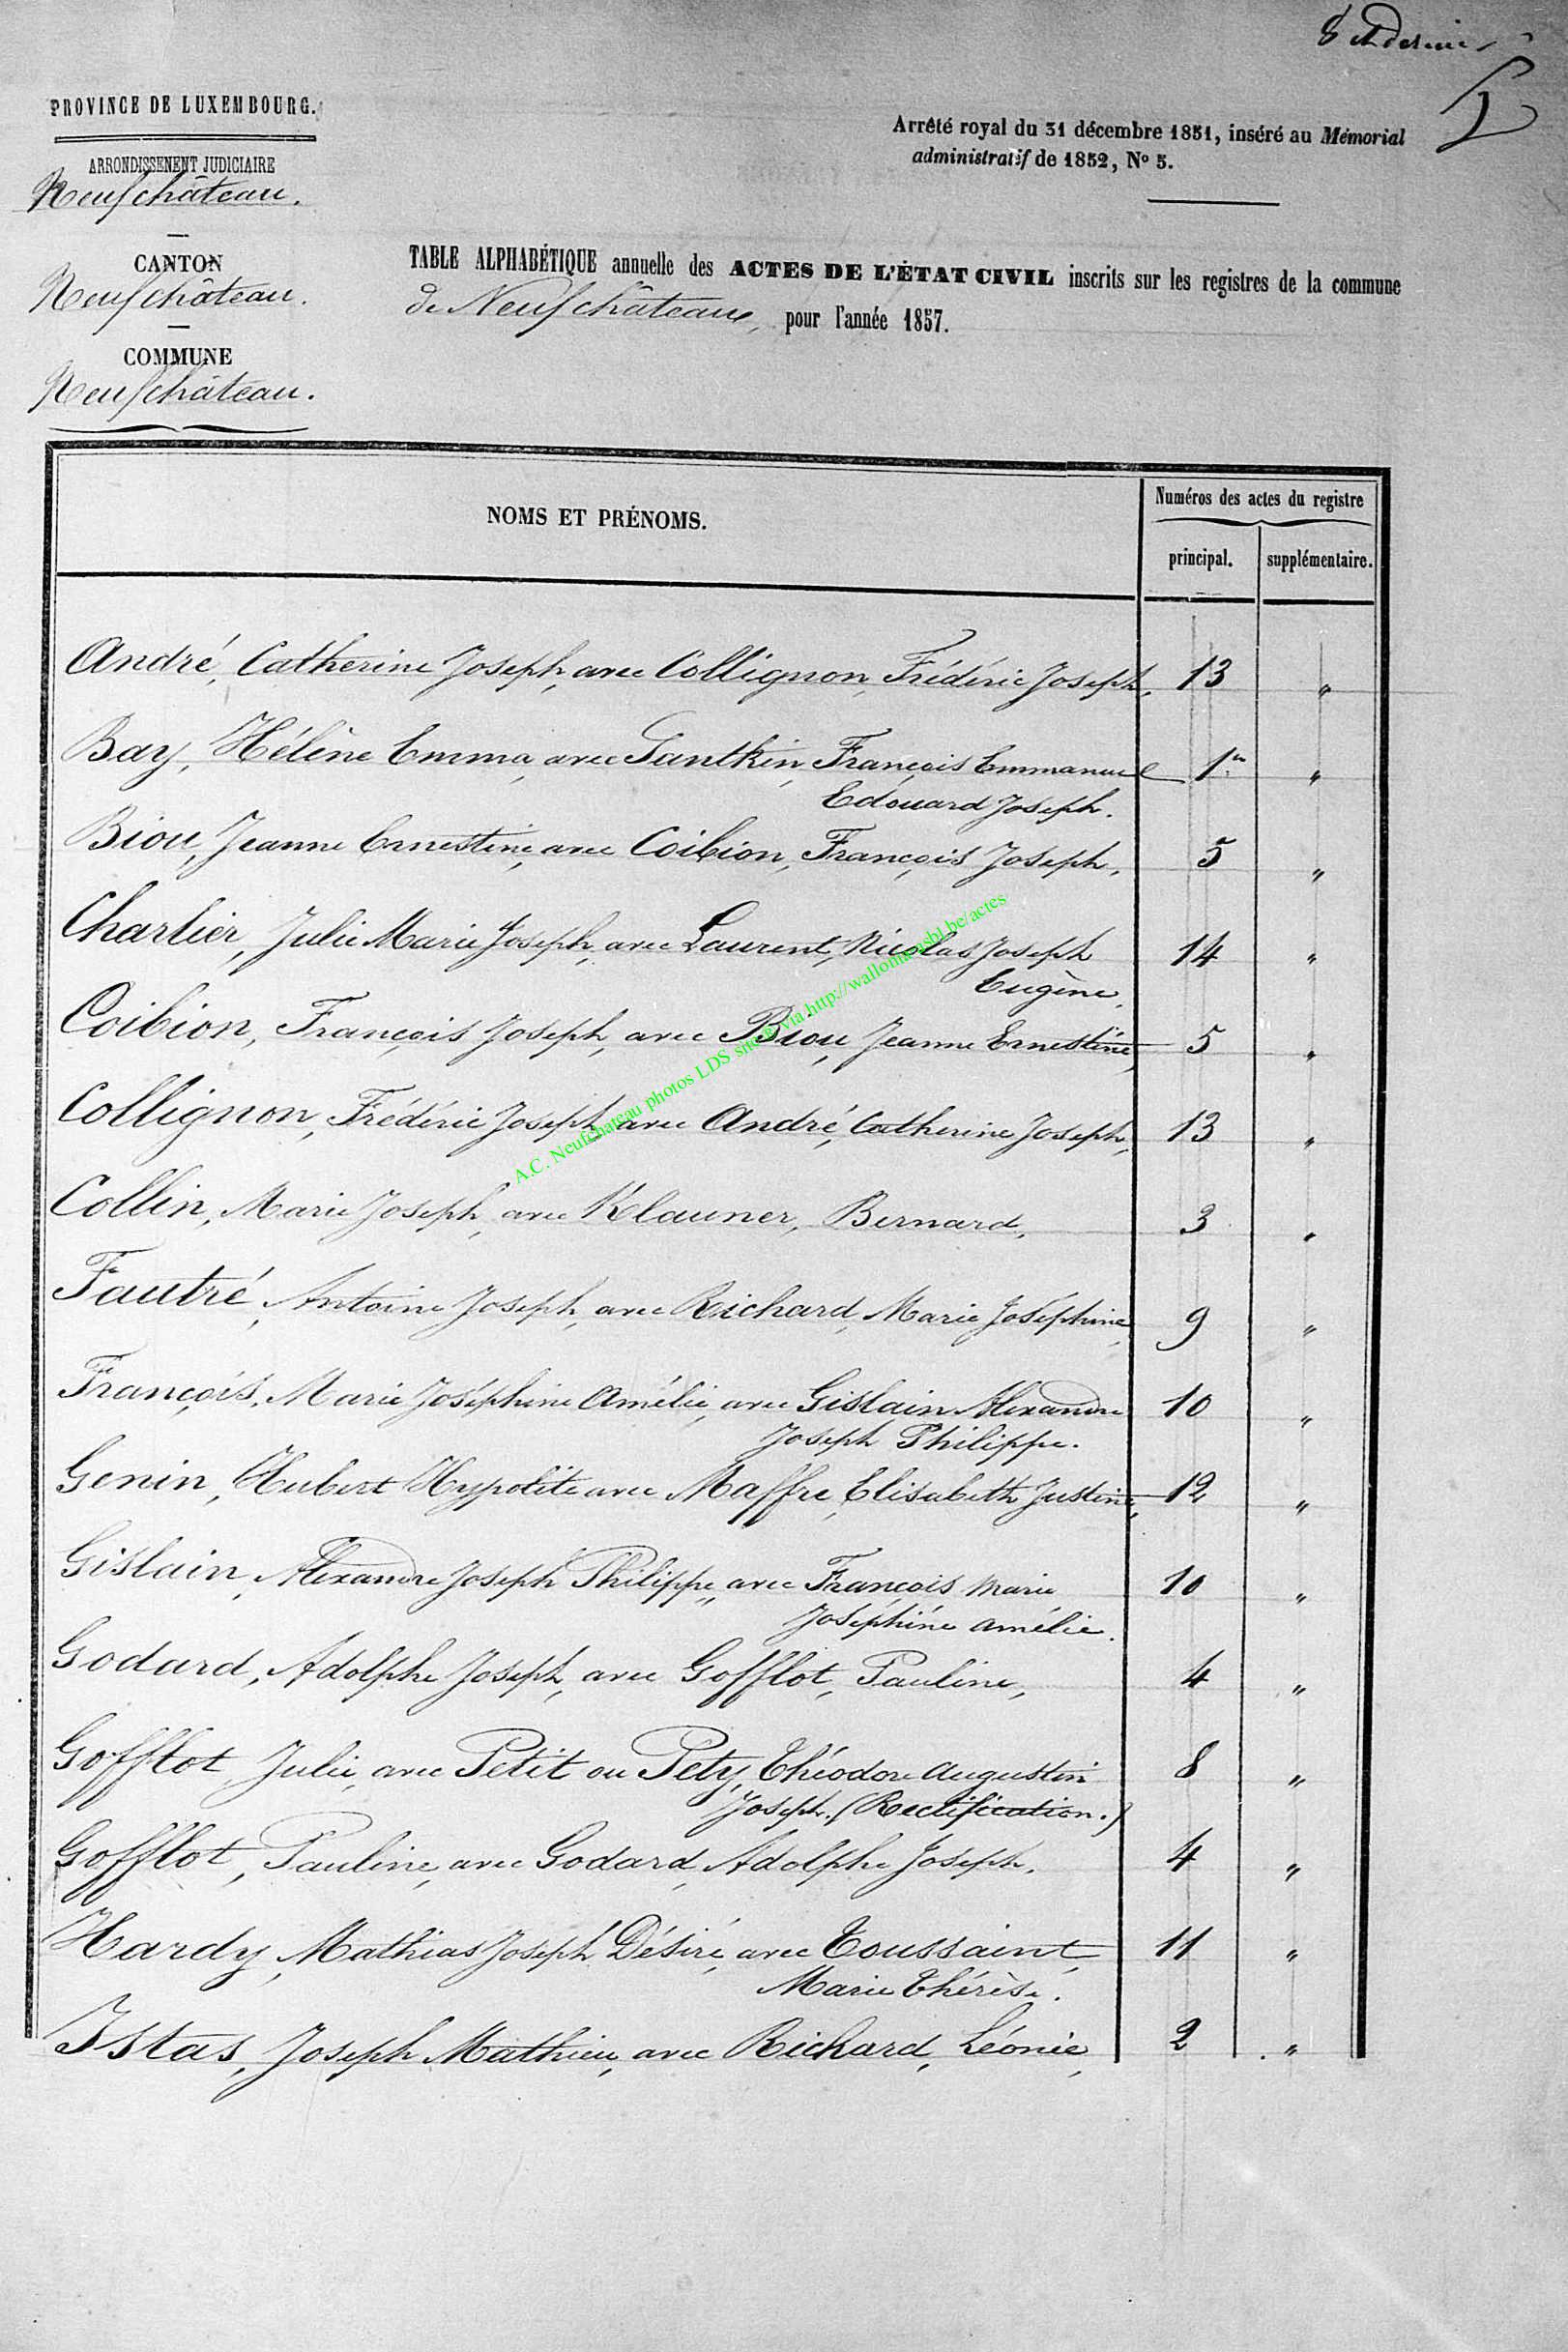 8 et dernier
PROVINCE DE LUXEMBOURG.
Arrêté royal du 31 décembre 1851, inséré au Mémorial
administratif de 1852, No 5.
ARRONDISSEMENT JUDICIAIRE
Neufchâteau.
CANTON
Neufchâteau.
COMMUNE
Neufchâteau.
TABLE ALPHABÉTIQUE annuelle des ACTES DE L'ÉTAT CIVIL inscrits sur les registres de la commune
de Neufchâteau, pour l'année 1857.
NOMS ET PRÉNOMS.
Numéros des actes du registre
principal. supplémentaire.
André, Catherine Joseph, avec Collignon, Frédéric Joseph, 13 "
Bay, Hélène Emma, avec Tantkin, François Emmanuel 1er "
Edouard Joseph.
Biou, Jeanne Ernestine, avec Coibion, François Joseph, 5 "
Charlier, Julie Marie Joseph, avec Laurent, Nicolas Joseph 14 "
Eugène,
Coibion, François Joseph, avec Biou, Jeanne Ernestine, 5 "
Collignon, Frédéric Joseph, avec André, Catherine Joseph, 13 "
Collin, Marie Joseph, avec Klauner, Bernard, 3 "
Fautré, Antoine Joseph, avec Richard, Marie Joséphine, 9 "
François, Marie Joséphine Amélie, avec Gislain Alexandre 10 "
Joseph Philippe.
Genin, Hubert Hypolite avec Maffre, Elisabeth Justine, 12 "
Gislain, Alexandre Joseph Philippe, avec François Marie 10 "
Joséphine Amélie.
Godard, Adolphe Joseph, avec Gofflot, Pauline, 4 "
Gofflot Julie, avec Petit ou Pety, Théodore Augustin 8 "
Joseph. (Rectification.)
Gofflot, Pauline, avec Godard, Adolphe Joseph. 4 "
Hardy, Mathias Joseph Désiré, avec Toussaint, 11 "
Marie Thérèse.
Istas, Joseph Mathieu, avec Richard, Léonie, 2 "
A.C. Neufchateau photos LDS site via http://wallonia-asbl.be/actes